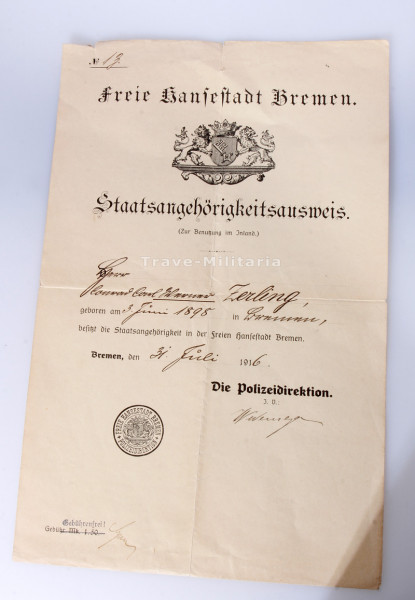 № 19.
Freie Hansestadt Bremen.
Staatsangehörigkeitsausweis.
(Zur Benutzung im Inland.)
Trave-Militaria
Herr
Conrad Carl Werner Zerling,
geboren am 3 Juni 1898 in Bremen,
besitzt die Staatsangehörigkeit in der Freien Hansestadt Bremen.
Bremen, den 31 Juli 1916
Die Polizeidirektion.
FREIE HANSESTADT BREMEN
POLIZEIDIREKTION
Gebührenfrei!
Gebühr Mk. 1.50